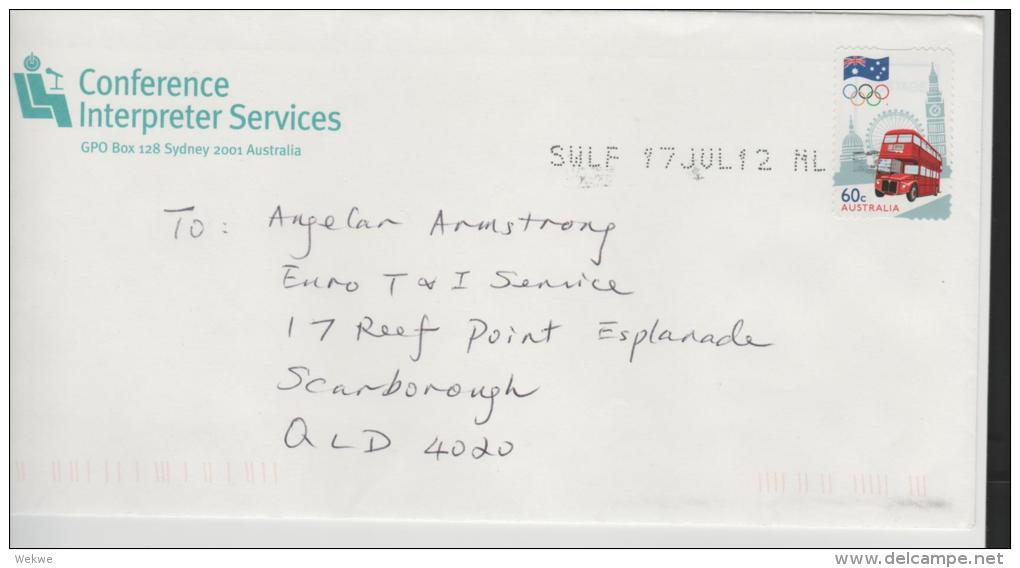 Conference
Interpreter Services
GPO Box 128 Sydney 2001 Australia
SWLF 17JUL12 NL
60c
AUSTRALIA
To: Angelar Armstrong
Euro T & I Service
17 Reef Point Esplanade
Scarborough
QLD 4020
Wekwe
delcampe.net